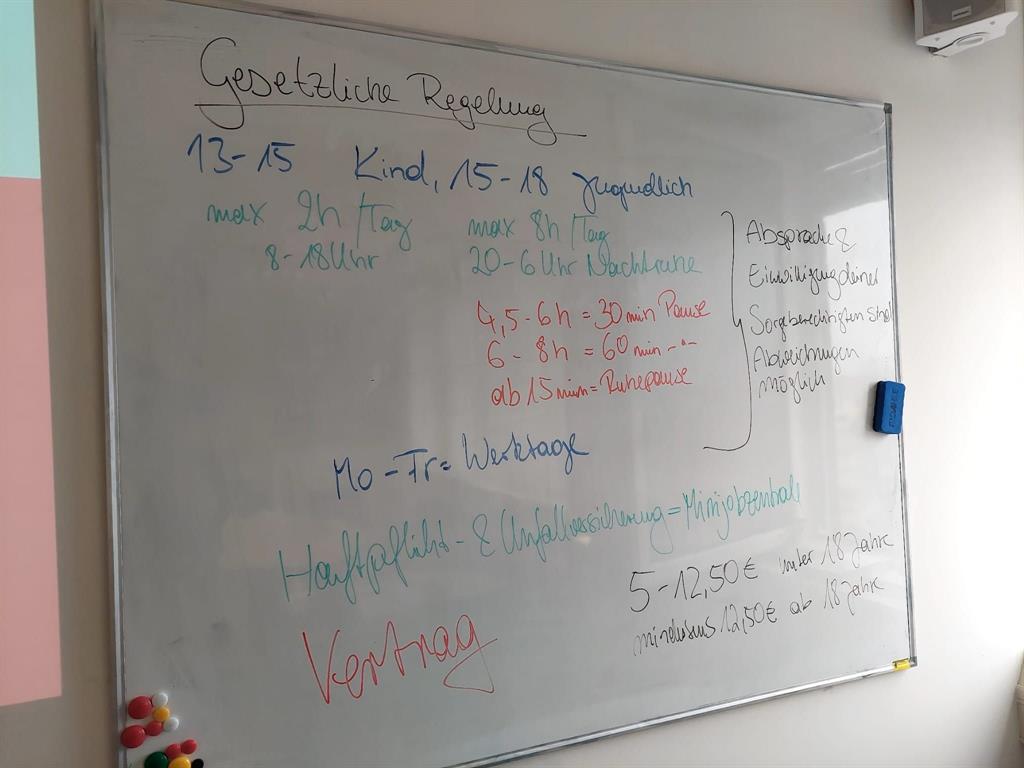 Gesetzliche Regelung
13-15 Kind, 15-18 Jugendlich
max 2h/Tag
8-18 Uhr
max 8h/Tag
20-6 Uhr Nachtruhe
4,5-6h = 30min Pause
6-8h = 60min -"-
ab 15min = Ruhepause
Absprache &
Einwilligung deiner
Sorgeberechtigten sind
Abweichungen
möglich
Mo-Fr = Werktage
Haftpflicht- & Unfallversicherung = Minijobzentrale
5-12,50€ unter 18 Jahre
mindestens 12,50€ ab 18 Jahre
Vertrag